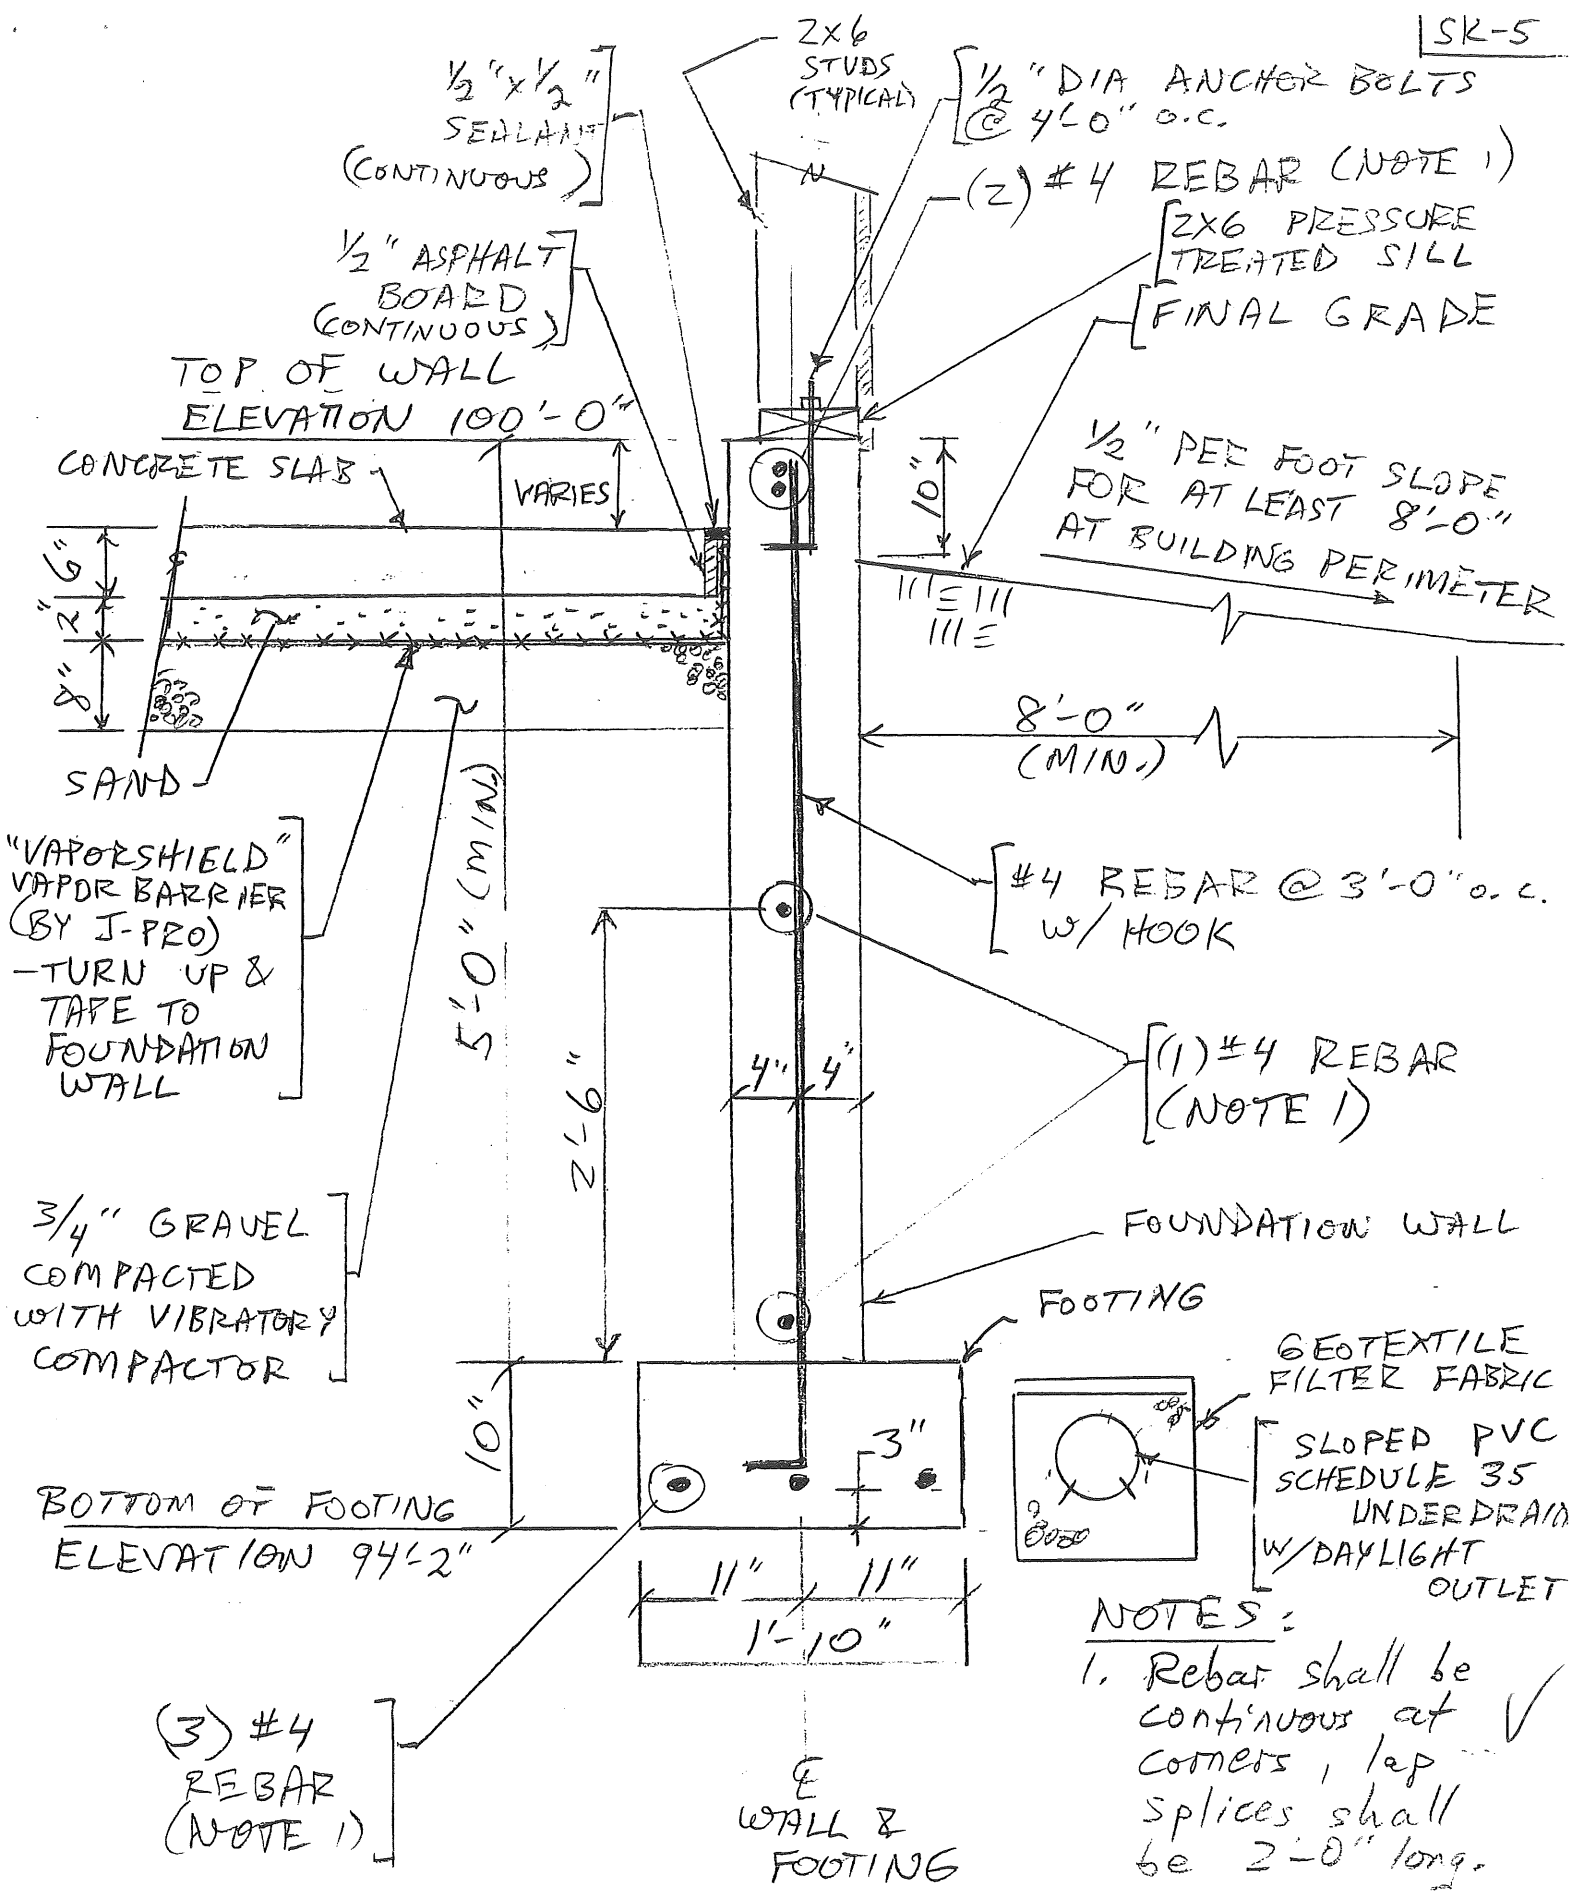 SK-5
2X6
STUDS
(TYPICAL)
1/2" x 1/2"
SEALANT
(CONTINUOUS)
1/2" DIA ANCHOR BOLTS
@ 4'-0" o.c.
(2) #4 REBAR (NOTE 1)
2X6 PRESSURE
TREATED SILL
FINAL GRADE
1/2" ASPHALT
BOARD
(CONTINUOUS)
TOP OF WALL
ELEVATION 100'-0"
CONCRETE SLAB
VARIES
10"
1/2" PER FOOT SLOPE
FOR AT LEAST 8'-0"
AT BUILDING PERIMETER
6"
2"
8"
SAND
8'-0"
(MIN.)
5'-0" (MIN)
"VAPORSHIELD"
VAPOR BARRIER
(BY J-PRO)
-TURN UP &
TAPE TO
FOUNDATION
WALL
#4 REBAR @ 3'-0" o.c.
W/ HOOK
2'-6"
4" 4"
(1) #4 REBAR
(NOTE 1)
3/4" GRAVEL
COMPACTED
WITH VIBRATORY
COMPACTOR
FOUNDATION WALL
FOOTING
GEOTEXTILE
FILTER FABRIC
SLOPED PVC
SCHEDULE 35
UNDERDRAIN
W/DAYLIGHT
OUTLET
10"
3"
BOTTOM OF FOOTING
ELEVATION 94'-2"
11" 11"
1'-10"
(3) #4
REBAR
(NOTE 1)
℄
WALL &
FOOTING
NOTES:
1. Rebar shall be
continuous at
corners, lap
splices shall
be 2'-0" long.